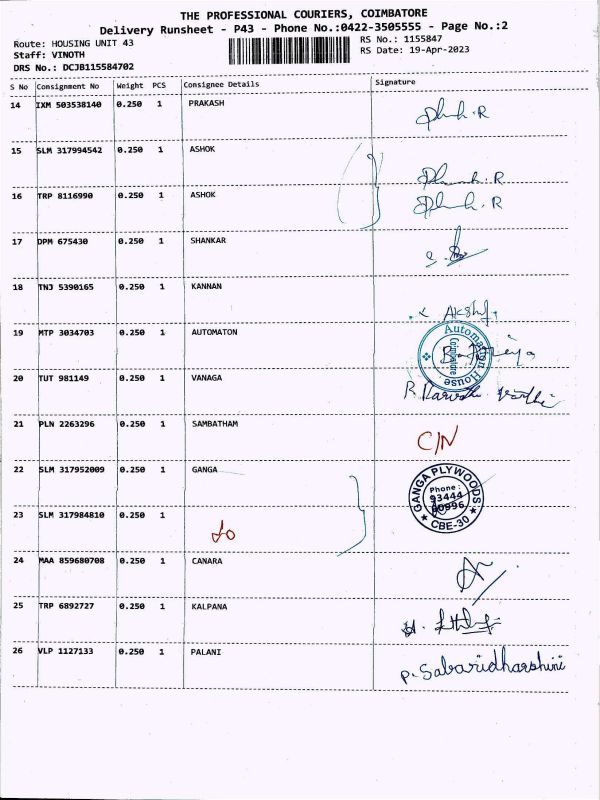 THE PROFESSIONAL COURIERS, COIMBATORE
Delivery Runsheet - P43 - Phone No.:0422-3505555 - Page No.:2
Route: HOUSING UNIT 43 RS No.: 1155847
Staff: VINOTH RS Date: 19-Apr-2023
DRS No.: DCJB115584702
S No Consignment No Weight PCS Consignee Details Signature
14 IXM 503538140 0.250 1 PRAKASH
15 SLM 317994542 0.250 1 ASHOK
16 TRP 8116990 0.250 1 ASHOK
17 DPM 675430 0.250 1 SHANKAR
18 TNJ 5390165 0.250 1 KANNAN
19 MTP 3034703 0.250 1 AUTOMATON
Automation House
Coimbatore
20 TUT 981149 0.250 1 VANAGA
21 PLN 2263296 0.250 1 SAMBATHAM C/N
22 SLM 317952009 0.250 1 GANGA
GANGA PLYWOODS
Phone :
93444
CBE-30
23 SLM 317984810 0.250 1
24 MAA 859680708 0.250 1 CANARA
25 TRP 6892727 0.250 1 KALPANA
26 VLP 1127133 0.250 1 PALANI P. Sabaridharshini